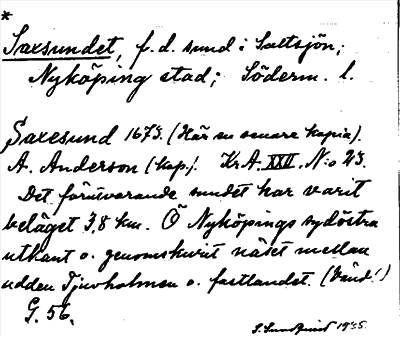 *
Saxsundet, f.d. sund i Saltsjön;
Nyköping stad; Söderm. l.
Saxesund 1673. (Här en senare kopia).
A. Anderson (kop.). Kr.A. XXII. N:o 23.
Det förutvarande sundet har varit
beläget 3,8 km. Ö Nyköpings sydöstra
utkant o. genomskurit näset mellan
udden Tjuvholmen o. fastlandet. (Vänd!)
G. 56.
S. Lundqvist 1935.